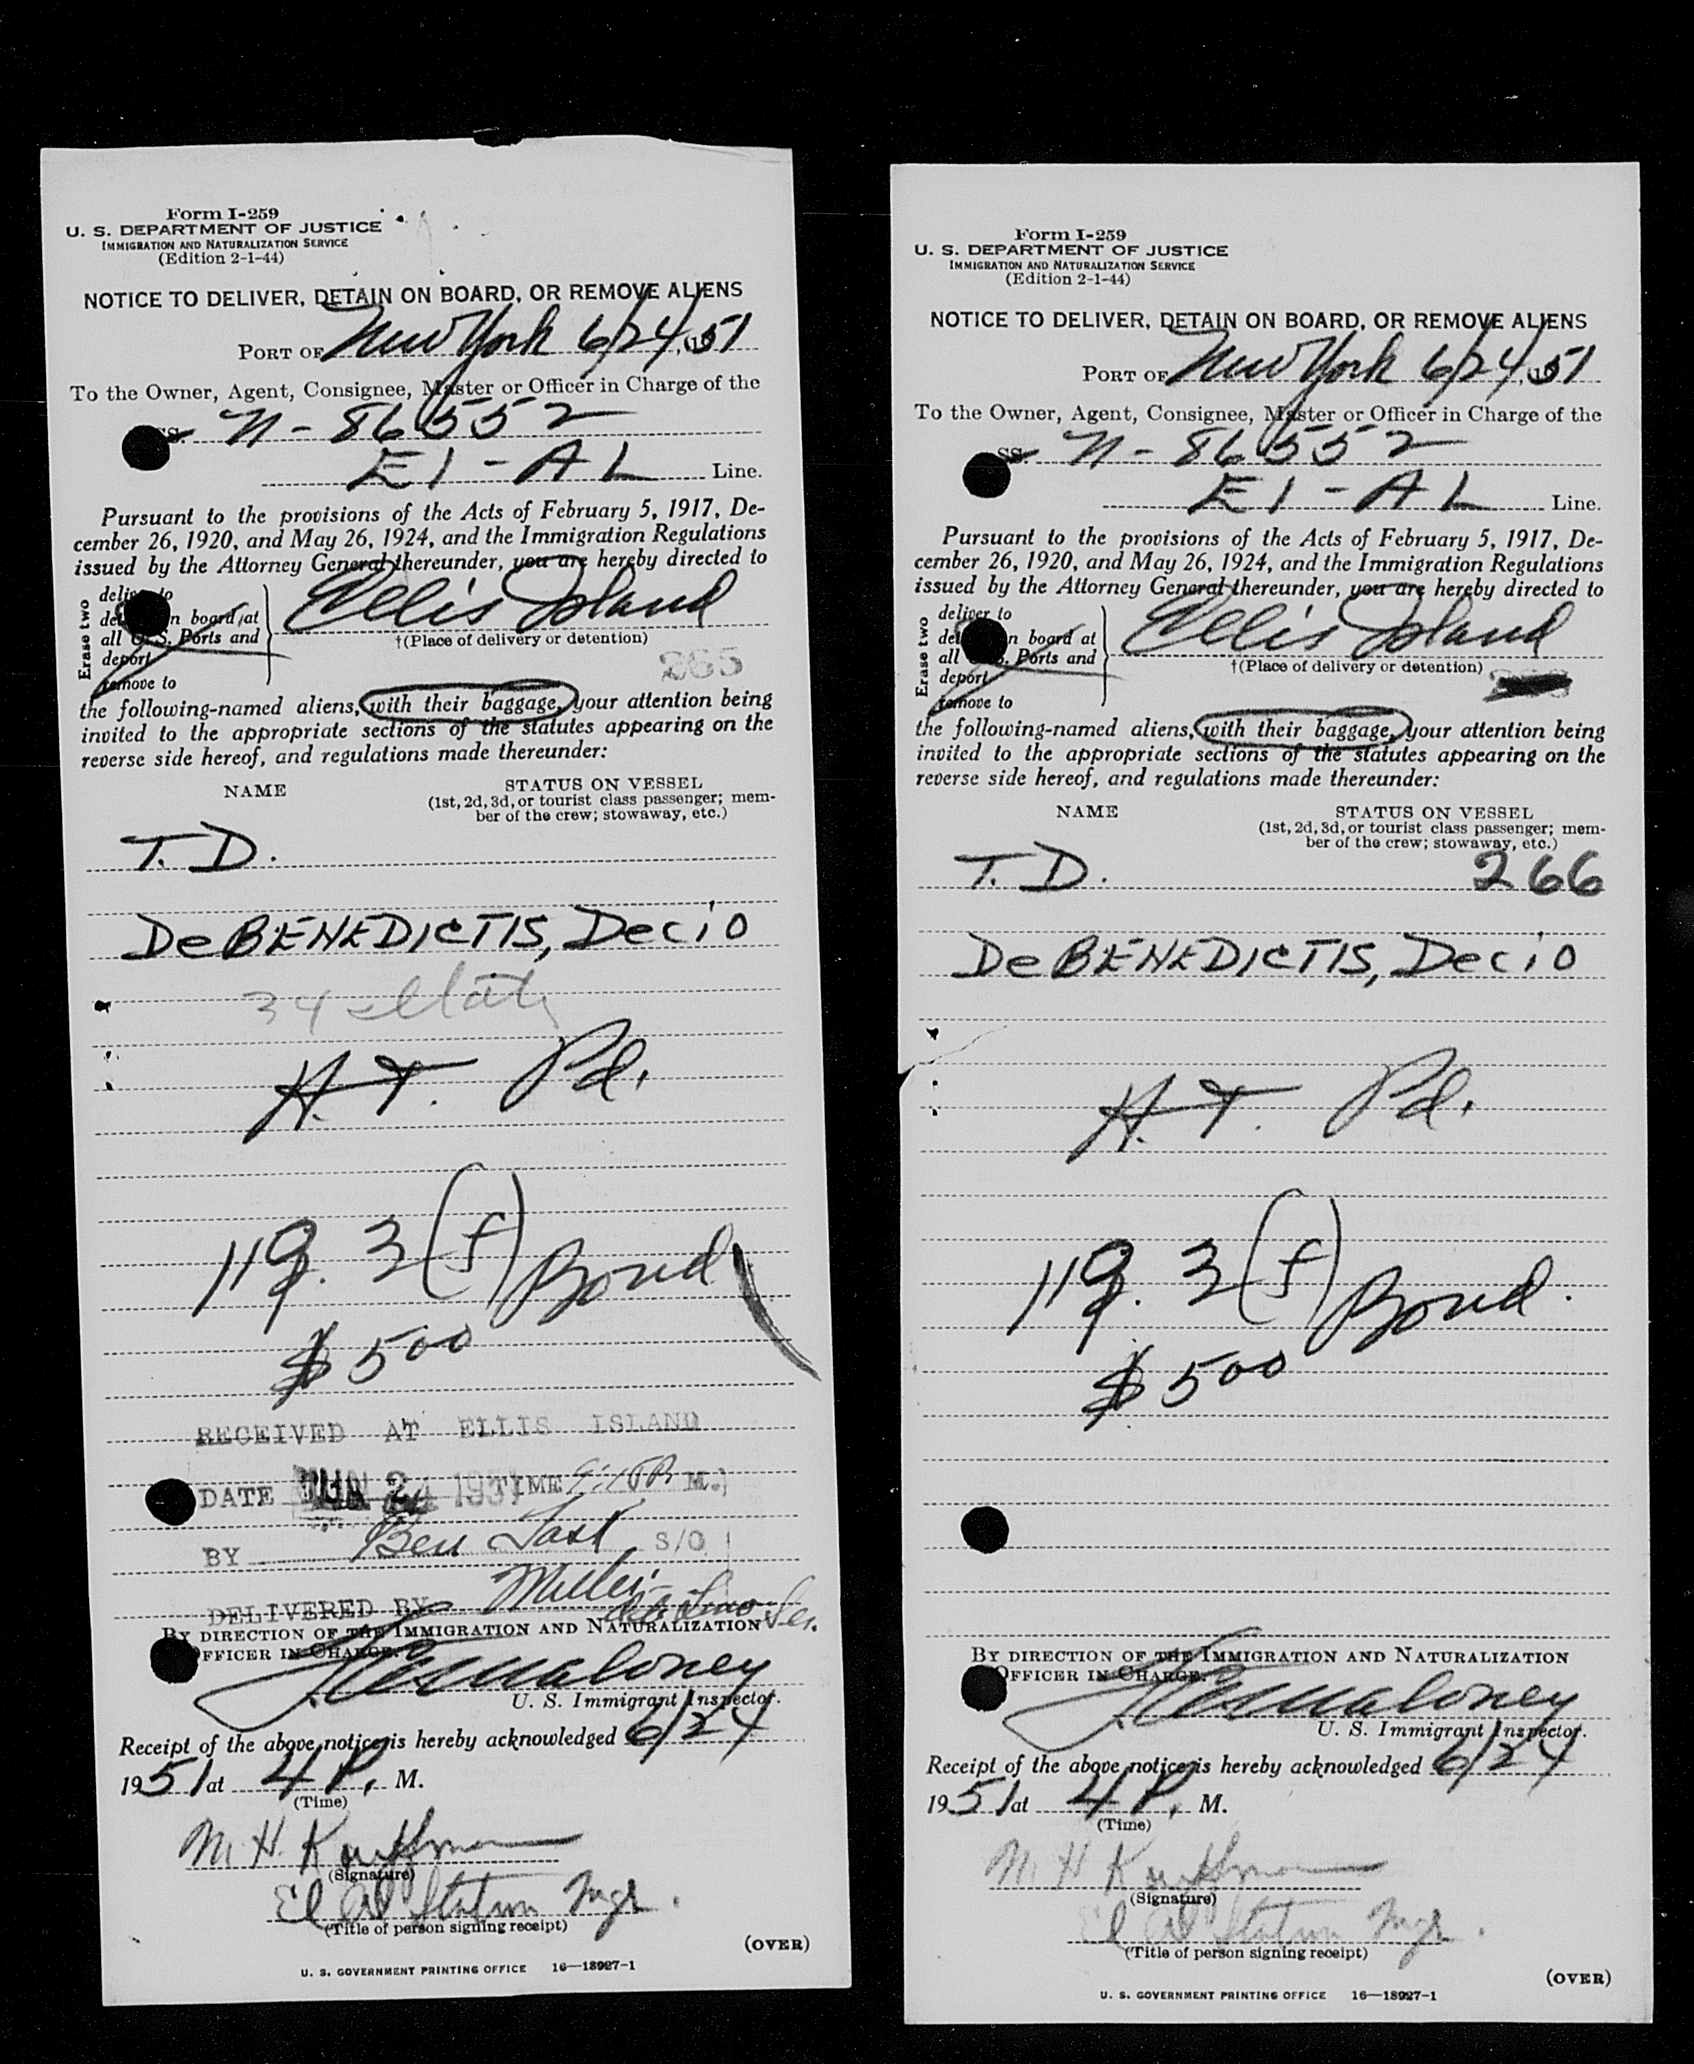 Form I-259
U. S. DEPARTMENT OF JUSTICE
IMMIGRATION AND NATURALIZATION SERVICE
(Edition 2-1-44)
NOTICE TO DELIVER, DETAIN ON BOARD, OR REMOVE ALIENS
PORT OF New York 6/24, 1951
To the Owner, Agent, Consignee, Master or Officer in Charge of the
SS. N-86552
El-AL Line.
Pursuant to the provisions of the Acts of February 5, 1917, De-
cember 26, 1920, and May 26, 1924, and the Immigration Regulations
issued by the Attorney General thereunder, you are hereby directed to
Erase two
deliver to
n board at
all U.S. Ports and
deport
remove to
Ellis Island
†(Place of delivery or detention)
265
the following-named aliens, with their baggage, your attention being
invited to the appropriate sections of the statutes appearing on the
reverse side hereof, and regulations made thereunder:
NAME STATUS ON VESSEL
(1st, 2d, 3d, or tourist class passenger; mem-
ber of the crew; stowaway, etc.)
T. D.
DeBENEDICTIS, Decio
34
H. T. Pd.
119. 3(f) Bond
$500
RECEIVED AT ELLIS ISLAND
DATE JUN 24 1951 TIME M.
BY Ben S/O
DELIVERED BY Miller
BY DIRECTION OF THE IMMIGRATION AND NATURALIZATION
OFFICER IN CHARGE.
U. S. Immigrant Inspector.
Receipt of the above notice is hereby acknowledged 6/24
1951 at 4 P. M.
(Time)
M. H. Kauffman
(Signature)
El Al Station Mgr.
(Title of person signing receipt)
(OVER)
U. S. GOVERNMENT PRINTING OFFICE 16—18927-1
Form I-259
U. S. DEPARTMENT OF JUSTICE
IMMIGRATION AND NATURALIZATION SERVICE
(Edition 2-1-44)
NOTICE TO DELIVER, DETAIN ON BOARD, OR REMOVE ALIENS
PORT OF New York 6/24, 1951
To the Owner, Agent, Consignee, Master or Officer in Charge of the
SS. N-86552
El-AL Line.
Pursuant to the provisions of the Acts of February 5, 1917, De-
cember 26, 1920, and May 26, 1924, and the Immigration Regulations
issued by the Attorney General thereunder, you are hereby directed to
Erase two
deliver to
n board at
all U.S. Ports and
deport
remove to
Ellis Island
†(Place of delivery or detention)
the following-named aliens, with their baggage, your attention being
invited to the appropriate sections of the statutes appearing on the
reverse side hereof, and regulations made thereunder:
NAME STATUS ON VESSEL
(1st, 2d, 3d, or tourist class passenger; mem-
ber of the crew; stowaway, etc.)
T. D. 266
DeBENEDICTIS, Decio
H. T. Pd.
119. 3(f) Bond.
$500
BY DIRECTION OF THE IMMIGRATION AND NATURALIZATION
OFFICER IN CHARGE.
U. S. Immigrant Inspector.
Receipt of the above notice is hereby acknowledged 6/24
1951 at 4 P. M.
(Time)
M H Kauffman
(Signature)
El Al Station Mgr.
(Title of person signing receipt)
(OVER)
U. S. GOVERNMENT PRINTING OFFICE 16—18927-1